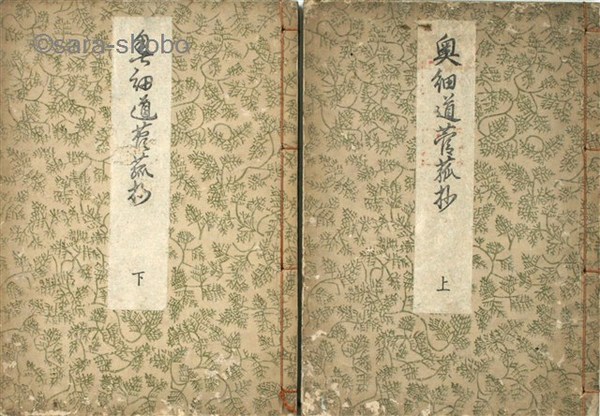 奥細道菅菰抄
上
奥細道菅菰抄
下
©sara-shobo